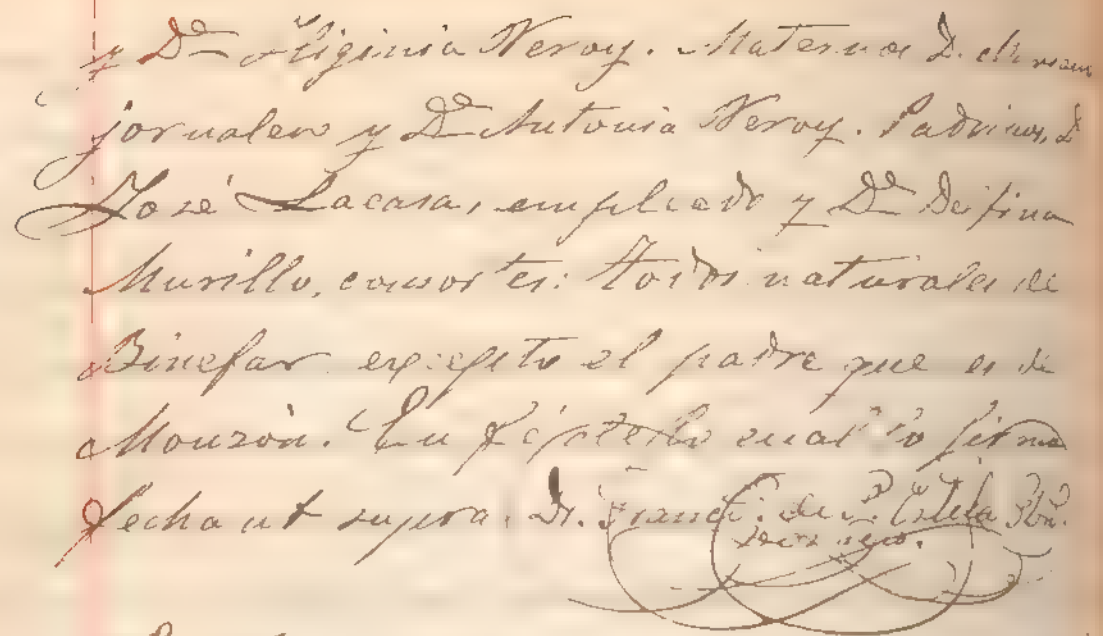 y Dª Higinia Neroy. Materna D. Mariano
jornalero y Dª Antonia Neroy. Padrinos, D
José Lacasa, empleado y Dª Delfina
Murillo, consortes: Todos naturales de
Binefar excepto el padre que es de
Monzón. En fé de lo cual lo firmo
fecha ut supra. Dr. Franco. de P. Estela Pbro.